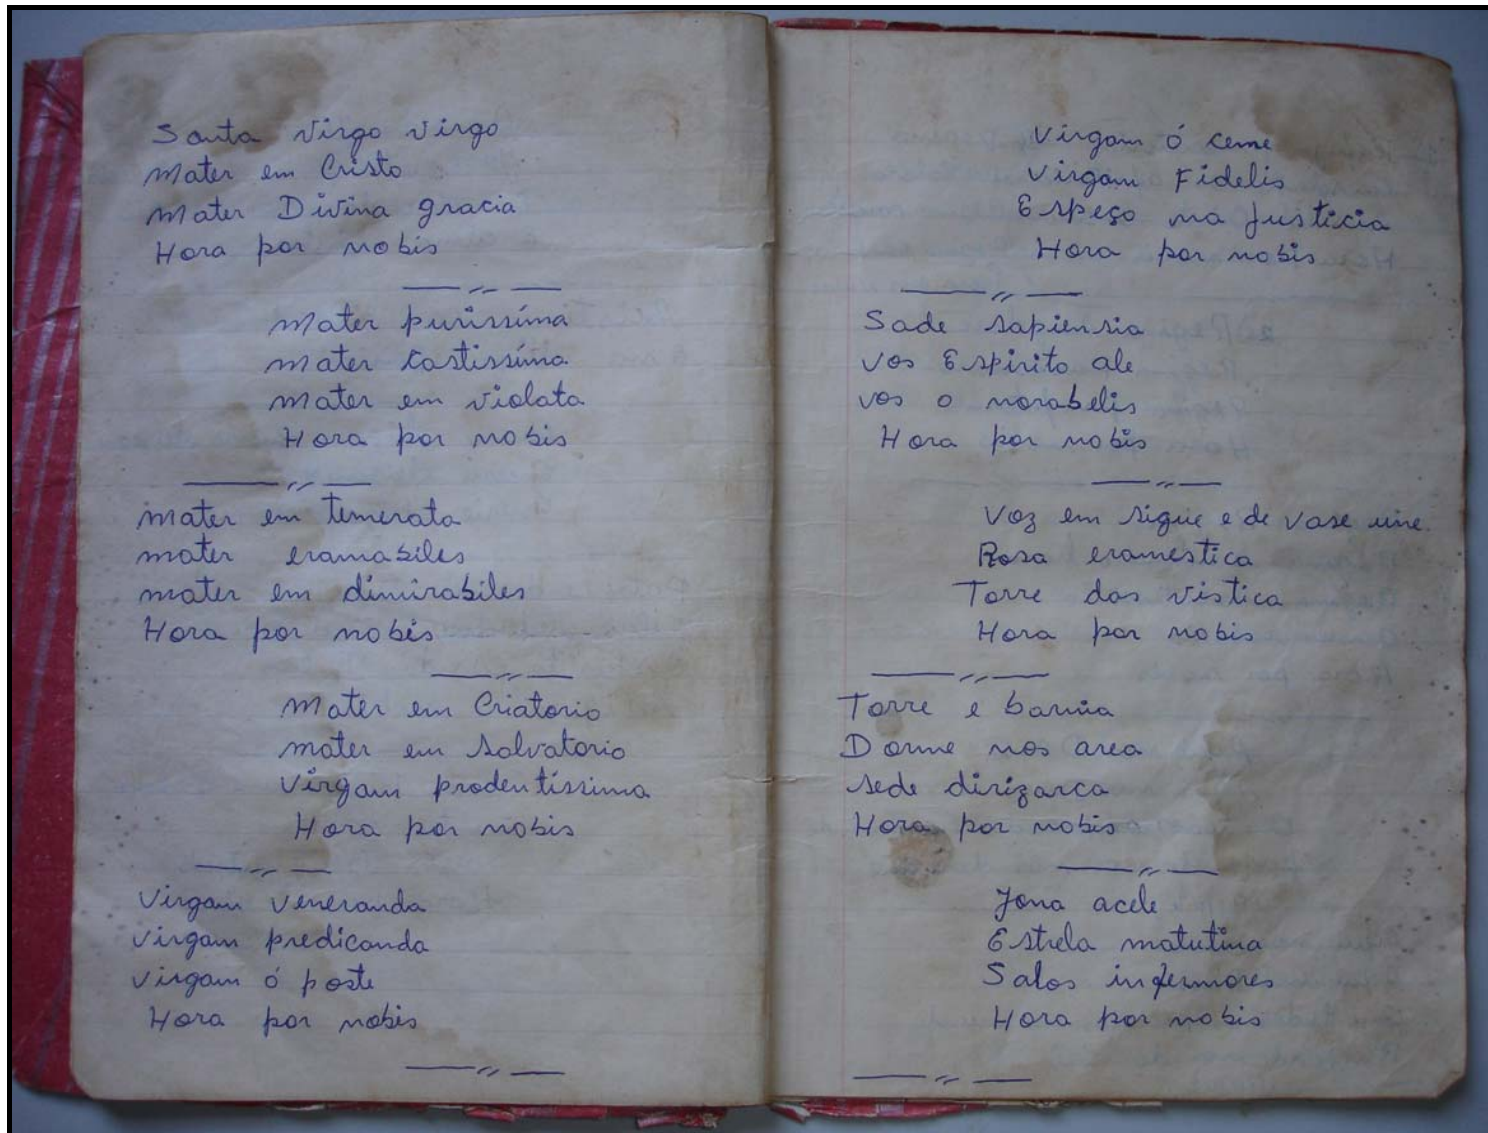 Santa Virgo Virgo
Mater em Cristo
Mater Divina gracia
Hora por nobis
Mater puríssima
Mater Castissíma
Mater em violata
Hora por nobis
Mater em temerata
mater eramabiles
mater em dimirabiles
Hora por nobis
Mater em Criatorio
mater em Salvatorio
Virgam prodentissima
Hora por nobis
Virgam Veneranda
Virgam predicanda
Virgam ó poste
Hora por nobis
Virgam ó ceme
Virgam Fidelis
Espeço na Justicia
Hora por nobis
Sade sapiensia
vos Espirito ale
vos o norabelis
Hora por nobis
Voz em sigue e de vase une
Rosa eramestica
Torre das vistica
Hora por nobis
Torre e barúa
Dorme nos area
sede dirizarca
Hora por nobis
Jona acele
Estrela matutina
Salos infermores
Hora por nobis